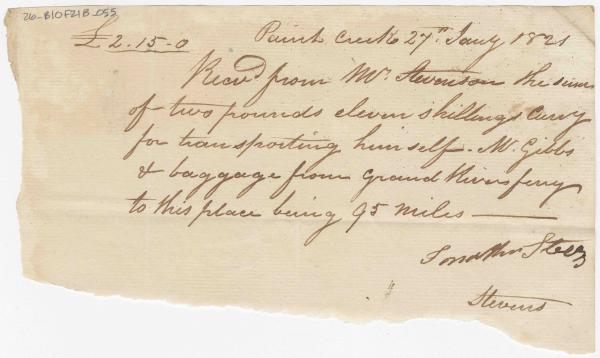 26-B10F21B_055
£2.15-0 Paint Creek 27th Jany 1821
Recvd from Mr. Stevenson the sum
of two pounds eleven shillings Curry
for transporting himself - Mr. Gibbs
& baggage from Grand River ferry
to this place being 95 miles
Stevens